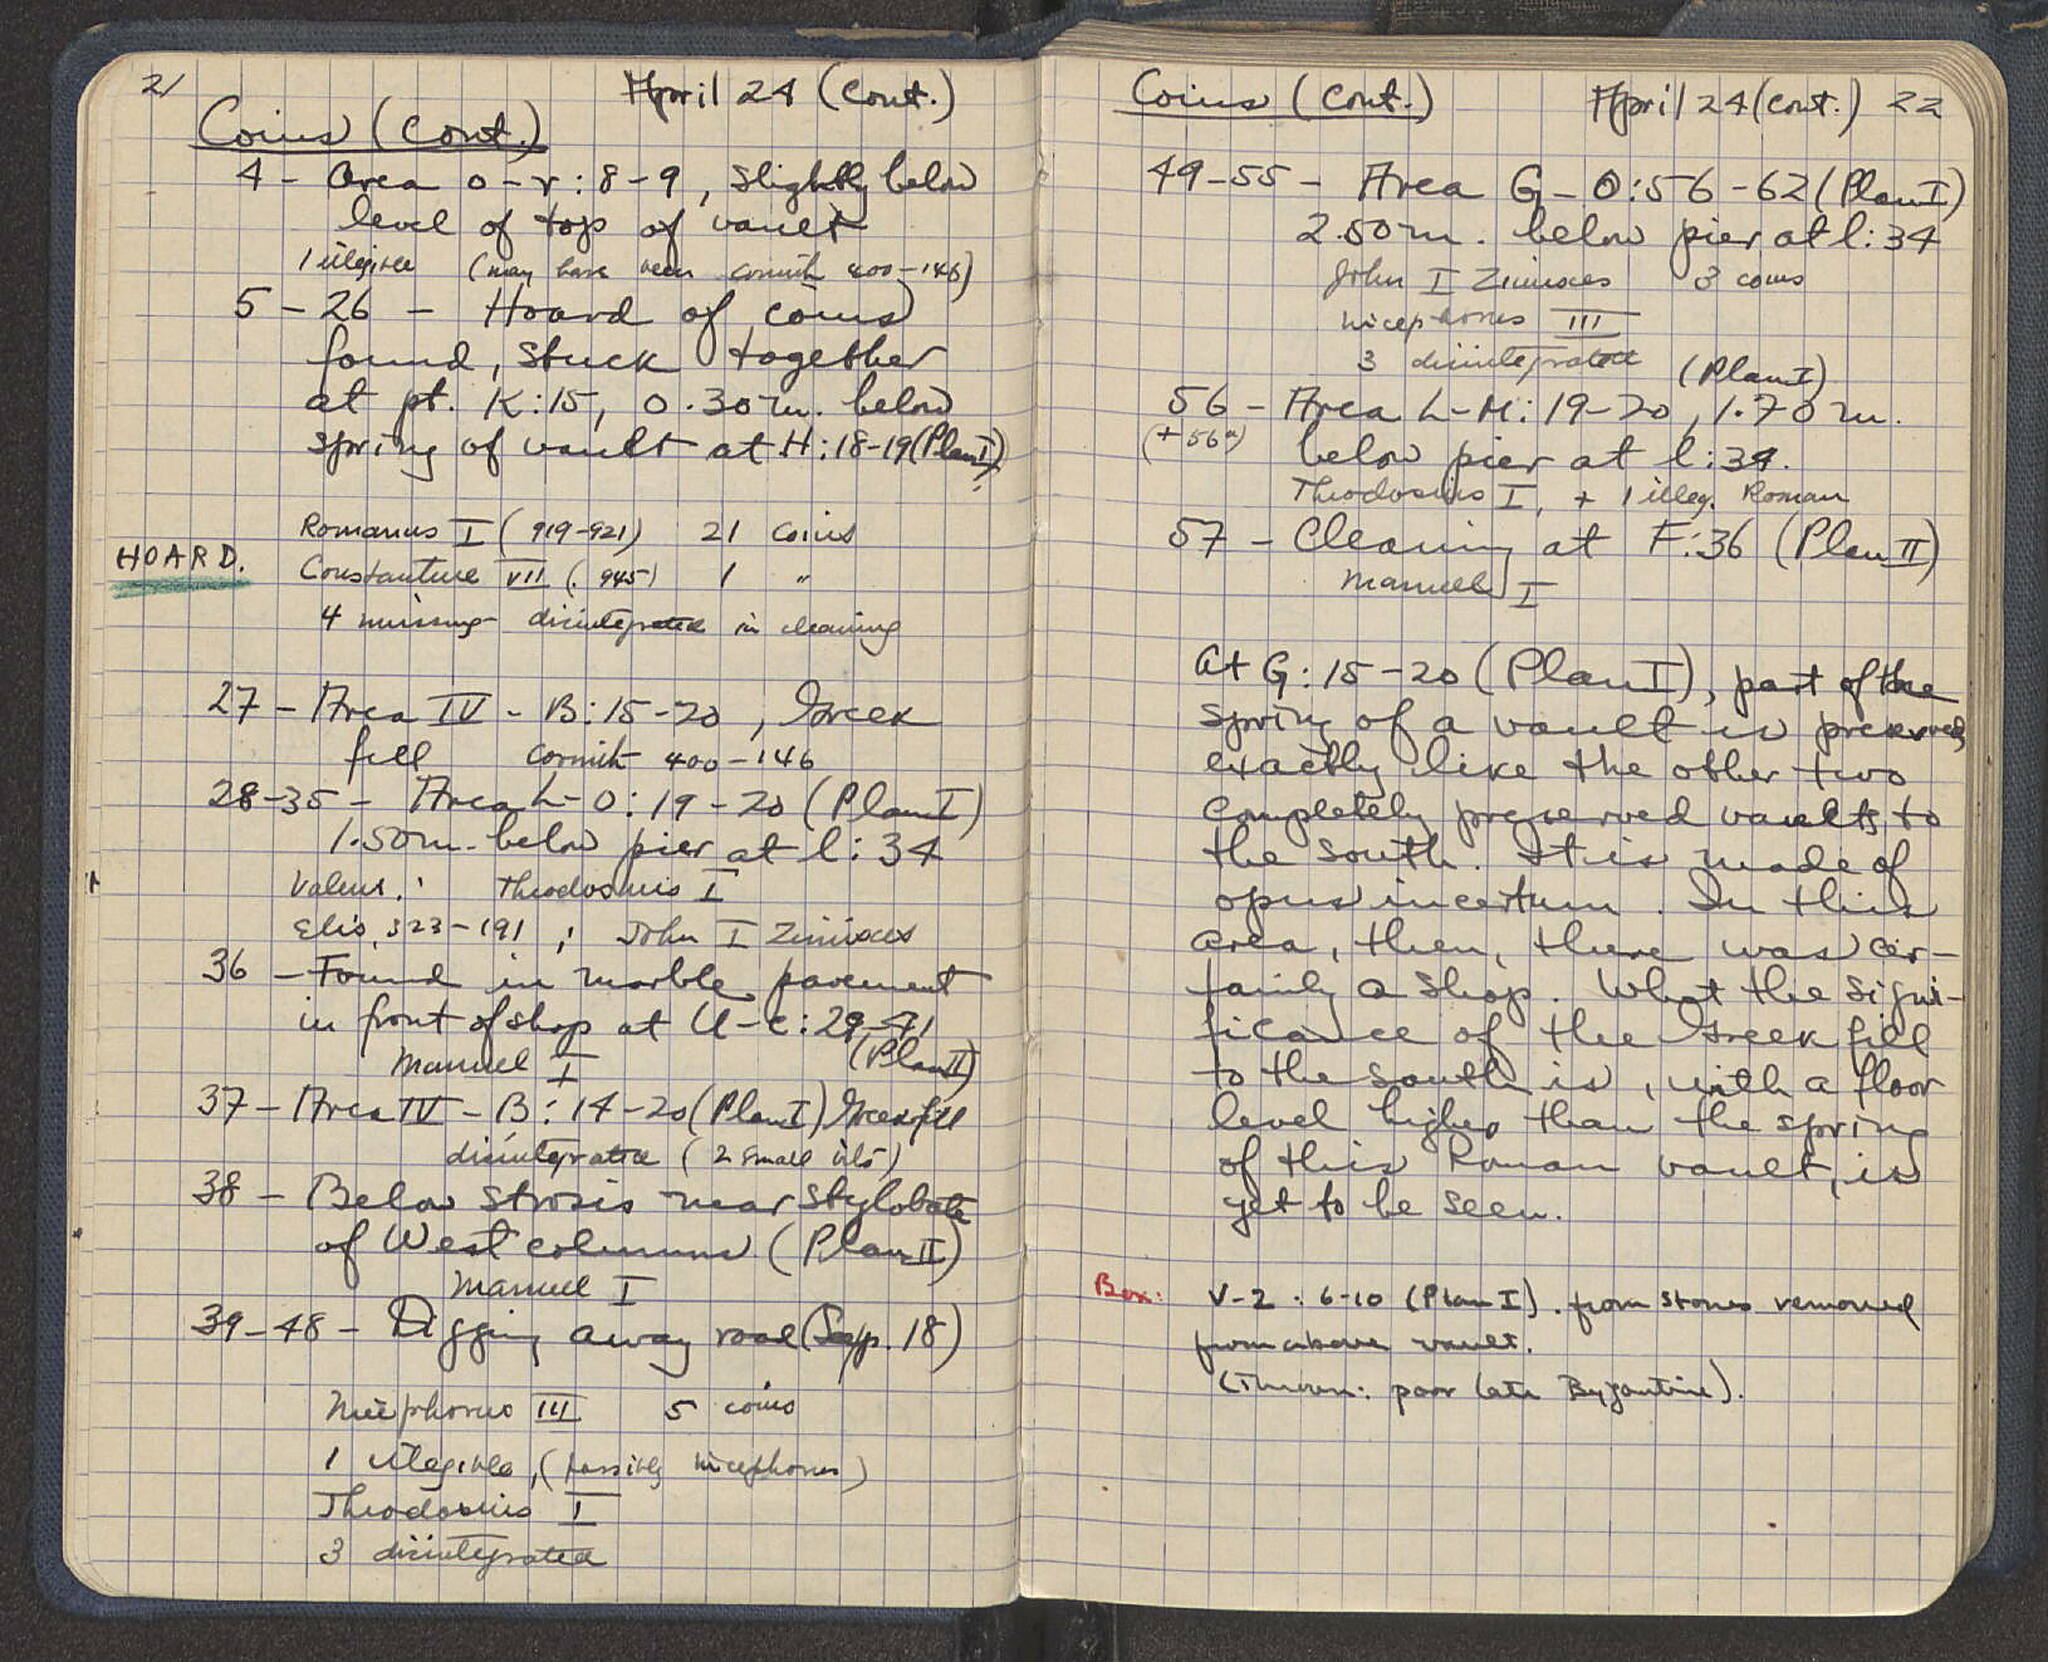 21
April 24 (cont.)
Coins (cont.)
4 - Area o-r:8-9, slightly below
level of top of vault
1 illegible (may have been Corinth 400-146)
5-26 - Hoard of coins
found, stuck together
at pt. K:15, 0.30m. below
spring of vault at H:18-19 (Plan I)
HOARD.
Romanus I (919-921) 21 coins
Constantine VII (945) 1 "
4 missing - disintegrated in cleaning
27 - Area IV - B:15-20, Greek
fill Corinth 400-146
28-35 - Area L-O:19-20 (Plan I)
1.50m. below pier at l:34
Valens; Theodosius I
Elis, 323-191; John I Zimisces
36 - Found in marble pavement
in front of shop at U-c:29-41
Manuel I (Plan II)
37 - Area IV - B:14-20 (Plan I) Greek fill
disintegrated (2 small bits)
38 - Below strosis near stylobate
of West columns (Plan II)
Manuel I
39-48 - Digging away road (See p. 18)
Nicephorus III 5 coins
1 illegible, (possibly Nicephorus)
Theodosius I
3 disintegrated
Coins (cont.)
April 24 (cont.) 22
49-55 - Area G-O:56-62 (Plan I)
2.50m. below pier at l:34
John I Zimisces 3 coins
Nicephorus III
3 disintegrated
(Plan I)
56 - Area L-M:19-20, 1.70m.
(+56a) below pier at l:34.
Theodosius I, + 1 illeg. Roman
57 - Cleaning at F:36 (Plan II)
Manuel I
At G:15-20 (Plan I), part of the
spring of a vault is preserved,
exactly like the other two
completely preserved vaults to
the south. It is made of
opus incertum. In this
area, then, there was cer-
tainly a shop. What the signi-
ficance of the Greek fill
to the south is, with a floor
level higher than the spring
of this Roman vault, is
yet to be seen.
Box: V-2:6-10 (Plan I). from stones removed
from above vault.
(Thrown: poor late Byzantine).